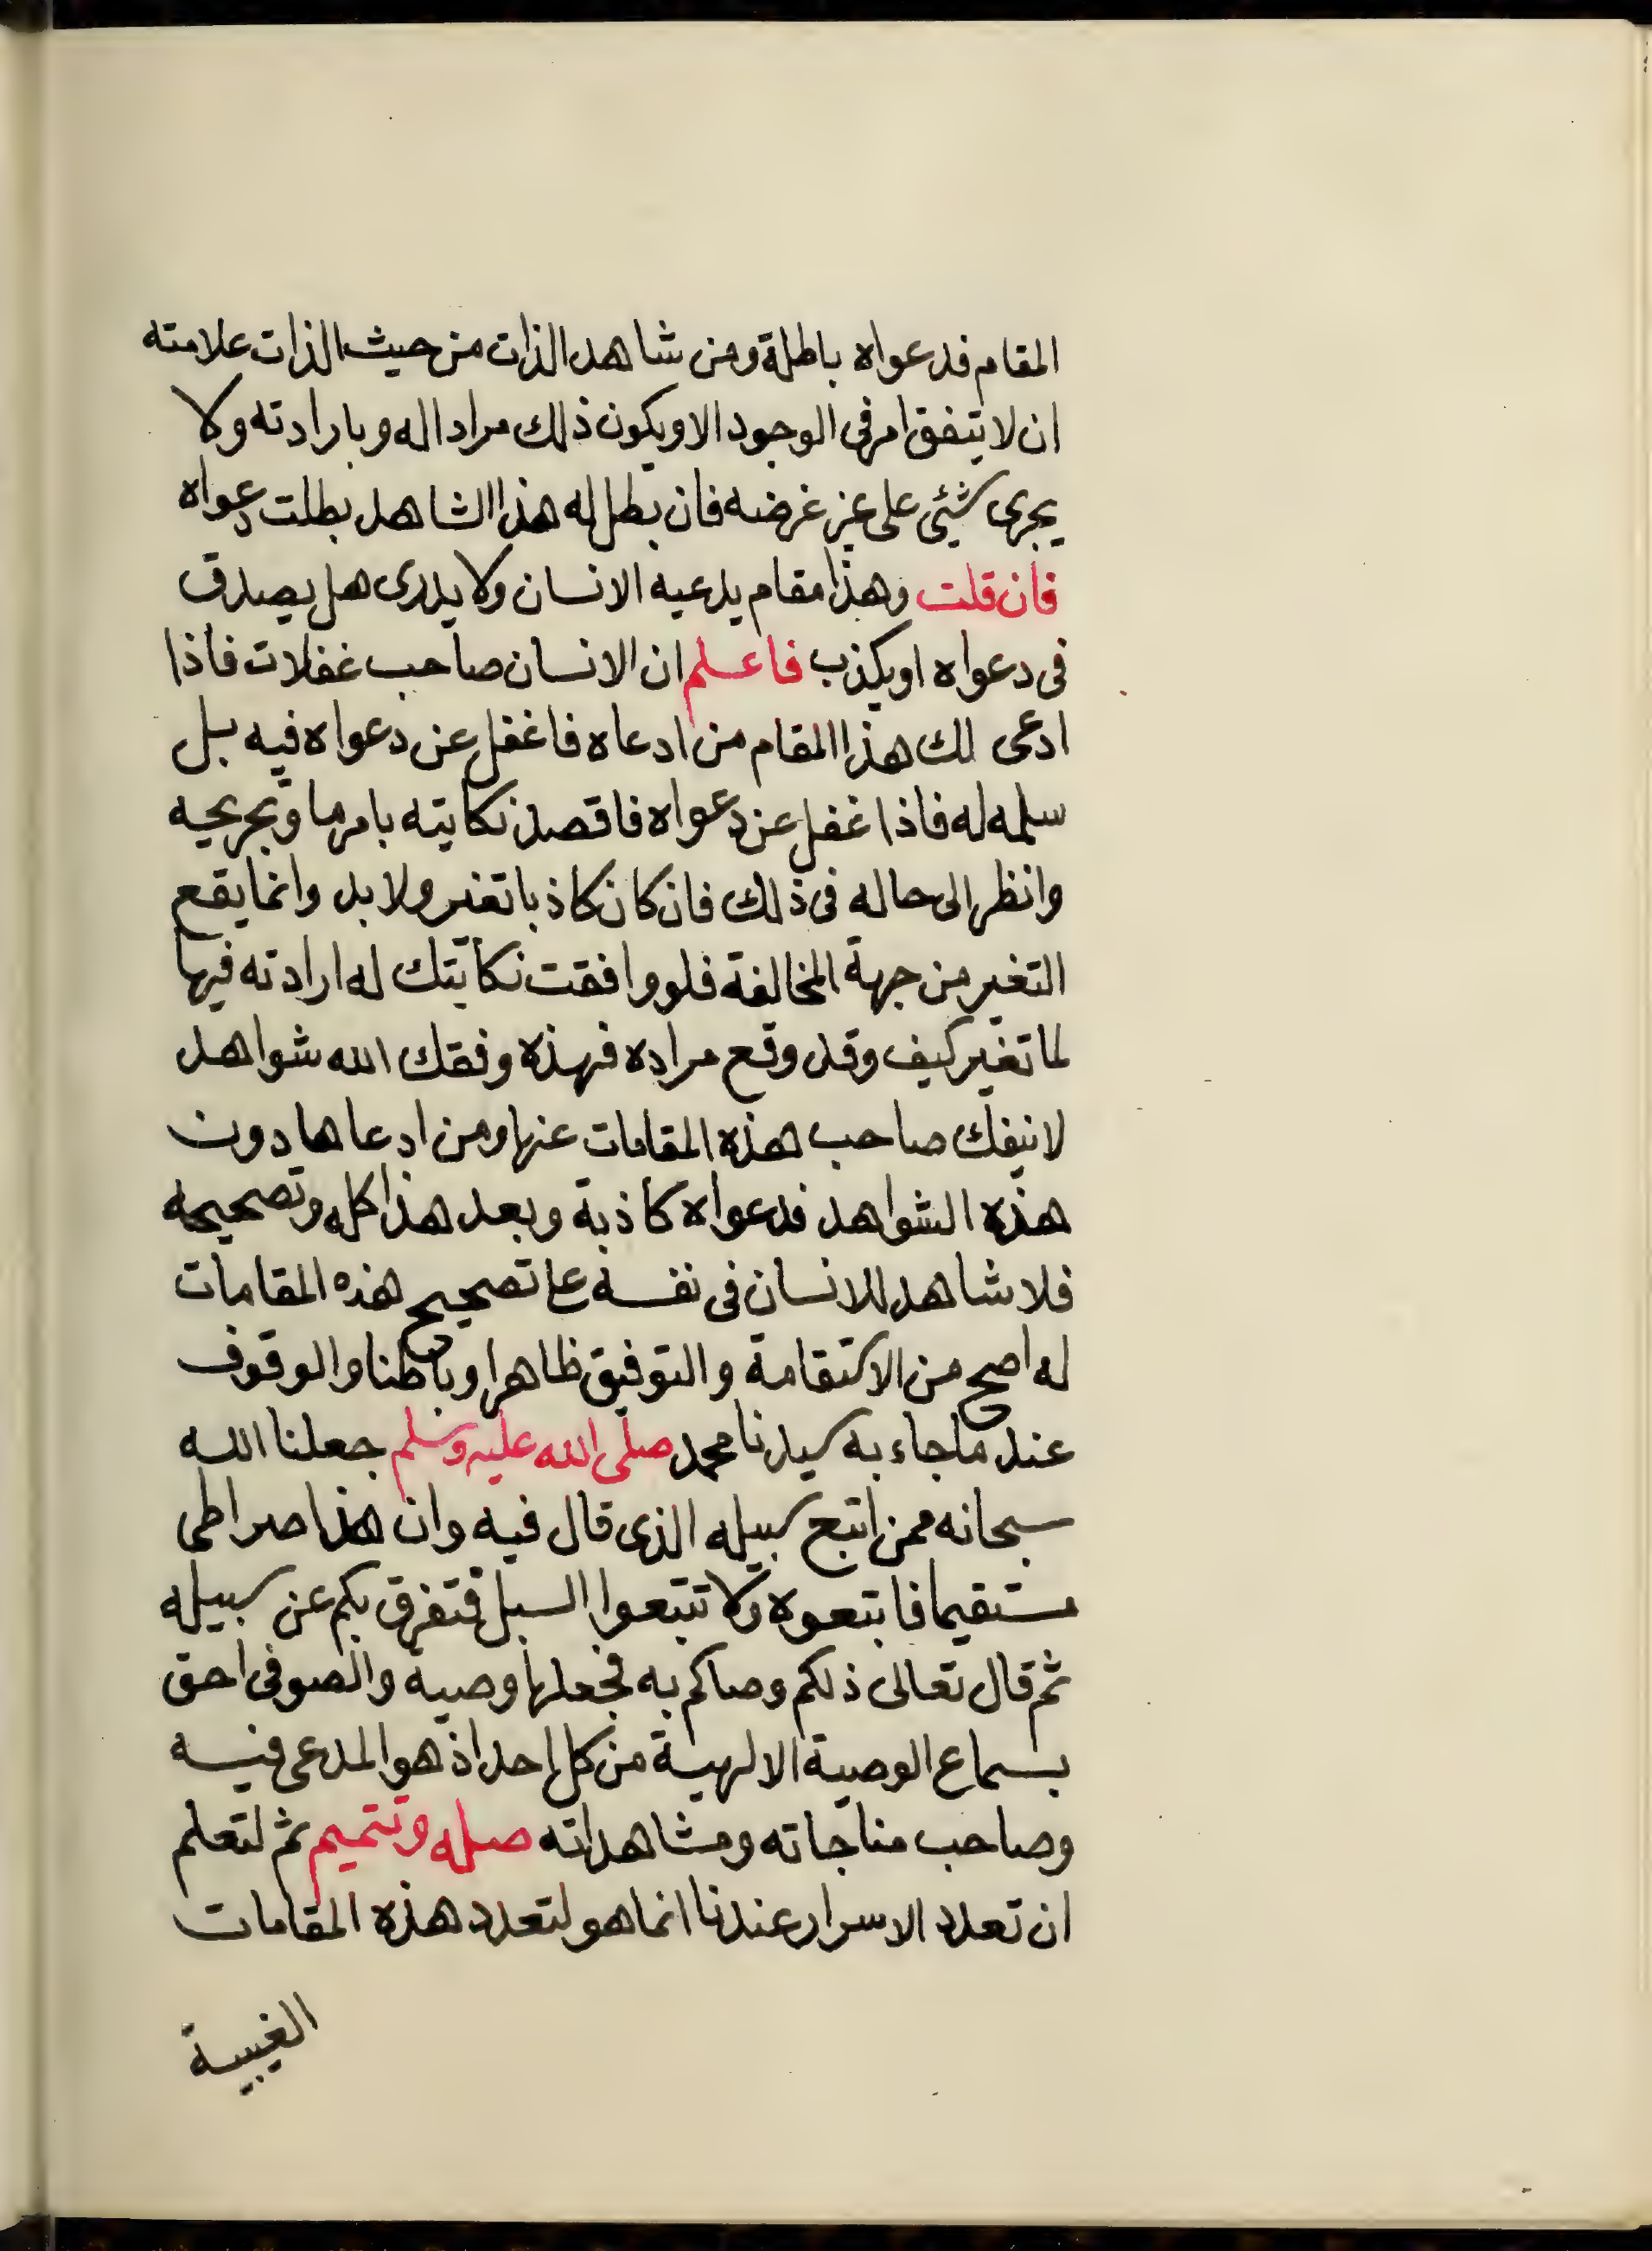 المقام فدعواه باطلة ومن شاهد الذات من حيث الذات علامته
ان لا يتفق امر فى الوجود الا ويكون ذلك مرادا له وبارادته ولا
يجرى شئى على غير غرضه فان بطل له هذا الشاهد بطلت دعواه
فان قلت وهذا مقام يدعيه الانسان ولا يدرى هل يصدق
فى دعواه او يكذب فاعلم ان الانسان صاحب غفلات فاذا
ادعى لك هذا المقام من ادعاه فاغفل عن دعواه فيه بل
سلمه له فاذا غفل عن دعواه فاقصد نكايته بامر ما وتجريحه
وانظر الى حاله فى ذلك فان كان كاذبا تغير ولا بد وانما يقع
التغير من جهة المخالفة فلو وافقت نكايتك له ارادته فيها
لما تغير كيف وقد وقع مراده فهذه وفقك الله شواهد
لا ينفك صاحب هذه المقامات عنها ومن ادعاها دون
هذه الشواهد فدعواه كاذبة وبعد هذا كله وتصحيحه
فلا شاهد للانسان فى نفسه على تصحيح هذه المقامات
له اصح من الاستقامة والتوفيق ظاهرا وباطنا والوقوف
عند ما جاء به سيدنا محمد صلى الله عليه وسلم جعلنا الله
سبحانه ممن اتبع سبيله الذى قال فيه وان هذا صراطى
مستقيما فاتبعوه ولا تتبعوا السبل فتفرق بكم عن سبيله
ثم قال تعالى ذلكم وصاكم به فجعلها وصية والصوفى احق
بسماع الوصية الالهية من كل احد اذ هو المدعى فيه
وصاحب مناجاته ومشاهداته صله وتتميم ثم لتعلم
ان تعدد الاسرار عندنا انما هو لتعدد هذه المقامات
الغيبية